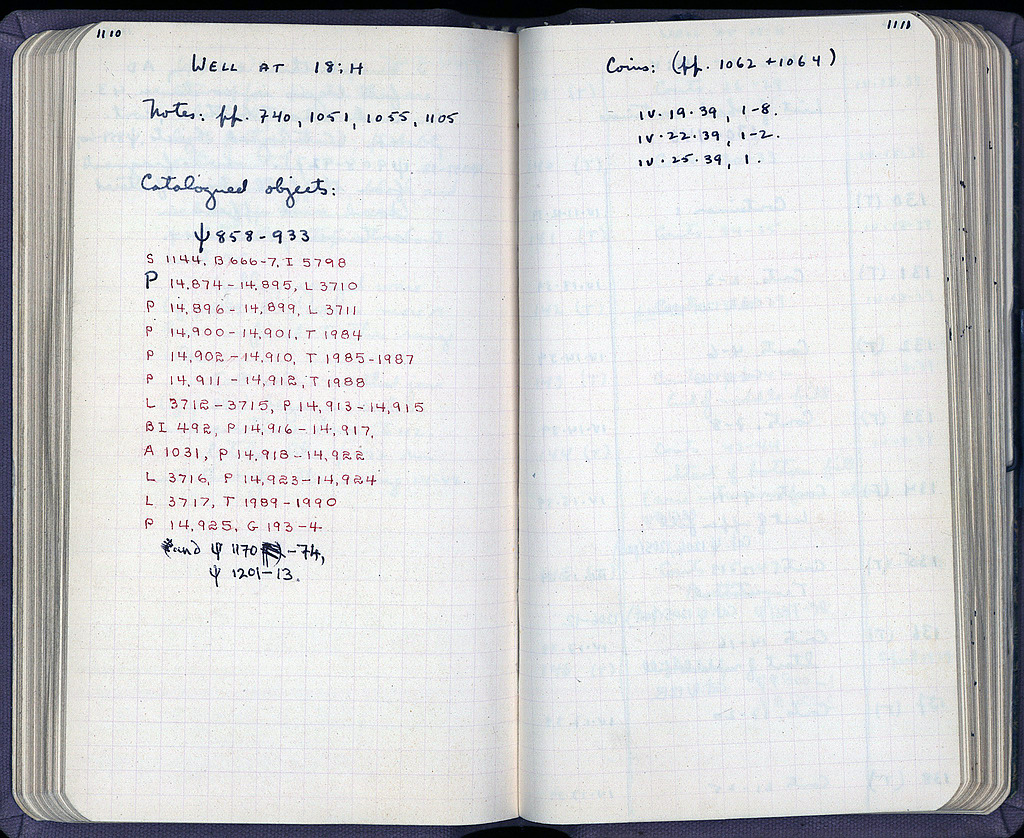 1110
WELL AT 18:H
Notes: pp. 740, 1051, 1055, 1105
Catalogued objects:
ψ 858-933
S 1144, B 666-7, I 5798
P 14,874-14,895, L 3710
P 14,896-14,899, L 3711
P 14,900-14,901, T 1984
P 14,902-14,910, T 1985-1987
P 14,911-14,912, T 1988
L 3712-3715, P 14,913-14,915
BI 492, P 14,916-14,917,
A 1031, P 14,918-14,922
L 3716, P 14,923-14,924
L 3717, T 1989-1990
P 14,925, G 193-4
and ψ 1170-74,
ψ 1201-13.
1111
Coins: (pp. 1062 + 1064)
IV·19·39, 1-8.
IV·22·39, 1-2.
IV·25·39, 1.